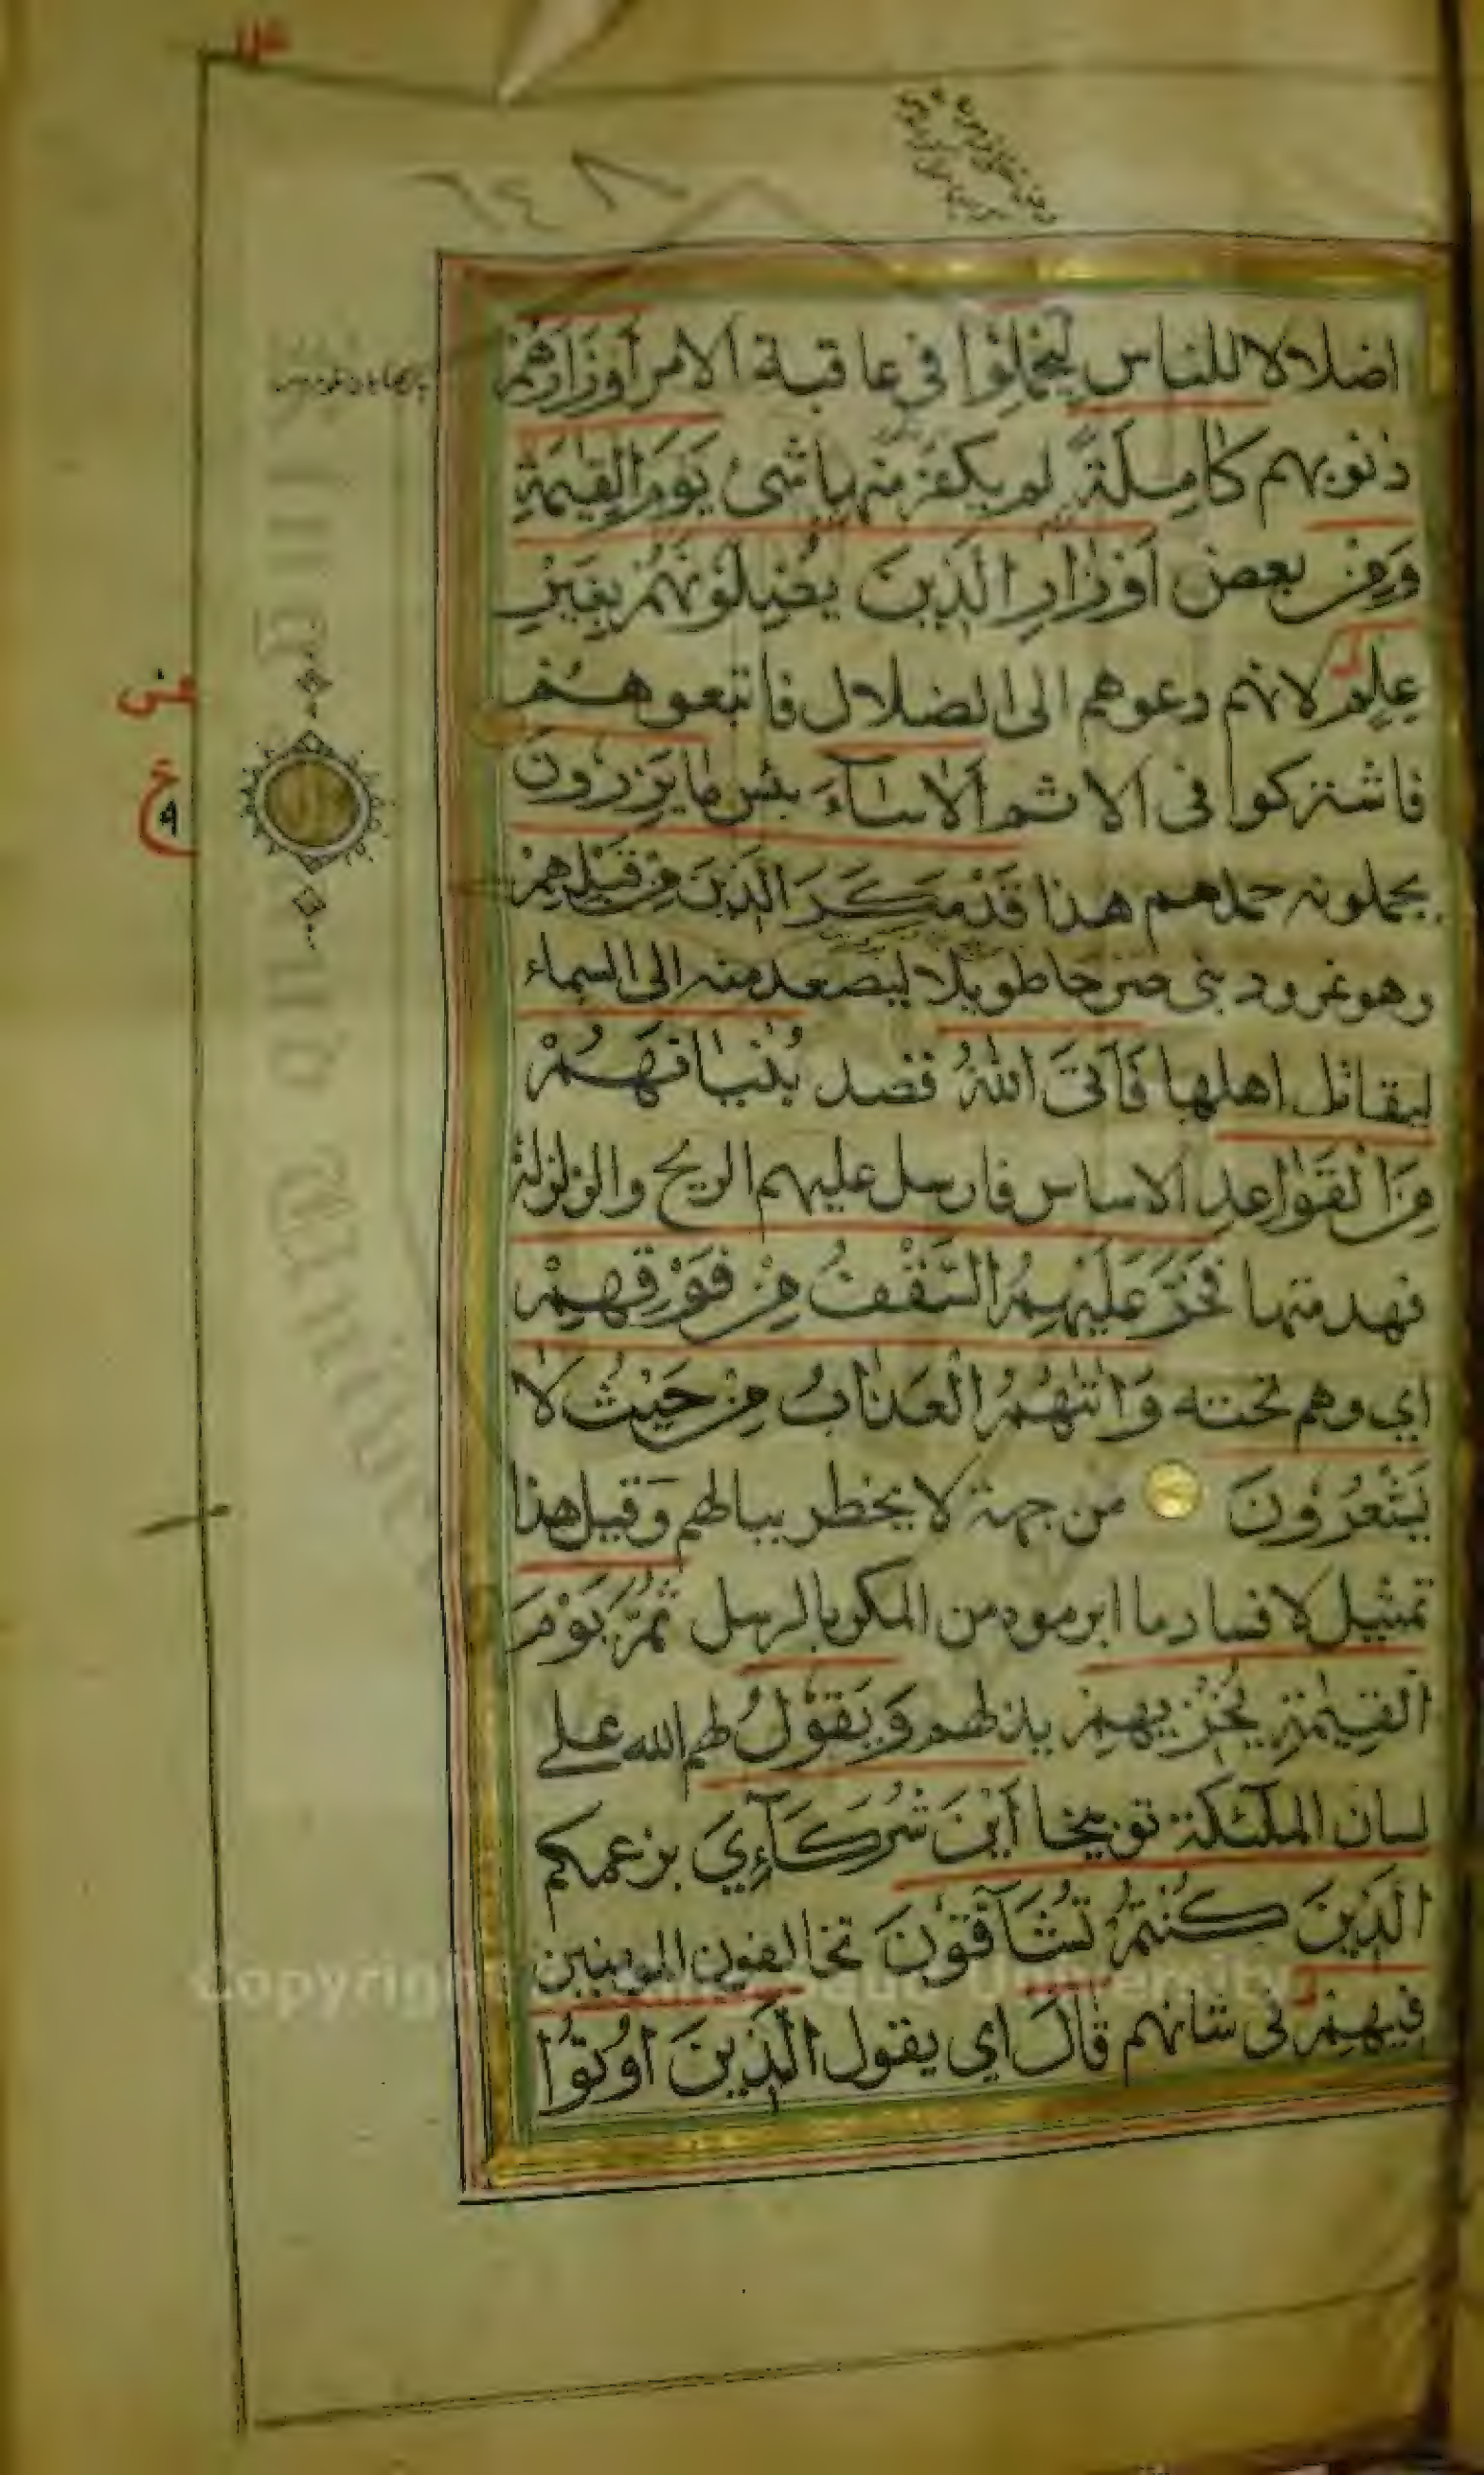 ٦٤٨
اضلالا للناس لِيَحْمِلُوْا في عاقبة الامر اَوْزَارَهُمْ
ذنوبهم كَامِلَةً لم يكفر منها شئ يَوْمَ الْقِيٰمَةِ
وَمِنْ بعض اَوْزَارِ الَّذِيْنَ يُضِلُّوْنَهُمْ بِغَيْرِ
عِلْمٍ لانهم دعوهم الى الضلال فاتبعوهم
فاشتركوا فى الاثم اَلَا سَآءَ بئس مَا يَزِرُوْنَ
يحملونه حملهم هذا قَدْ مَكَرَ الَّذِيْنَ مِنْ قَبْلِهِمْ
وهو نمرود بنى صرحا طويلا ليصعد منه الى السماء
ليقاتل اهلها فَاَتَى اللّٰهُ قصد بُنْيَانَهُمْ
مِنَ الْقَوَاعِدِ الاساس فارسل عليهم الريح والزلزلة
فهدمتها فَخَرَّ عَلَيْهِمُ السَّقْفُ مِنْ فَوْقِهِمْ
اي وهم تحته وَاَتٰىهُمُ الْعَذَابُ مِنْ حَيْثُ لَا
يَشْعُرُوْنَ من جهة لا يخطر ببالهم وقيل هذا
تمثيل لافساد ما ابرموه من المكر بالرسل ثُمَّ يَوْمَ
الْقِيٰمَةِ يُخْزِيْهِمْ يذلهم وَيَقُوْلُ لهم الله على
لسان الملٰئكة توبيخا اَيْنَ شُرَكَآءِيَ بزعمكم
الَّذِيْنَ كُنْتُمْ تُشَآقُّوْنَ تخالفون المؤمنين
فِيْهِمْ فى شانهم قَالَ اي يقول الَّذِيْنَ اُوْتُوا
ع
٩